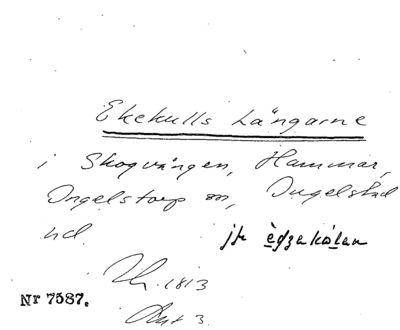 Ekekulls Längarne
i Skogvången, Hammar,
Ingelstorp sn, Ingelstad
hd.
jfr
1813
Nr 7587.
3.